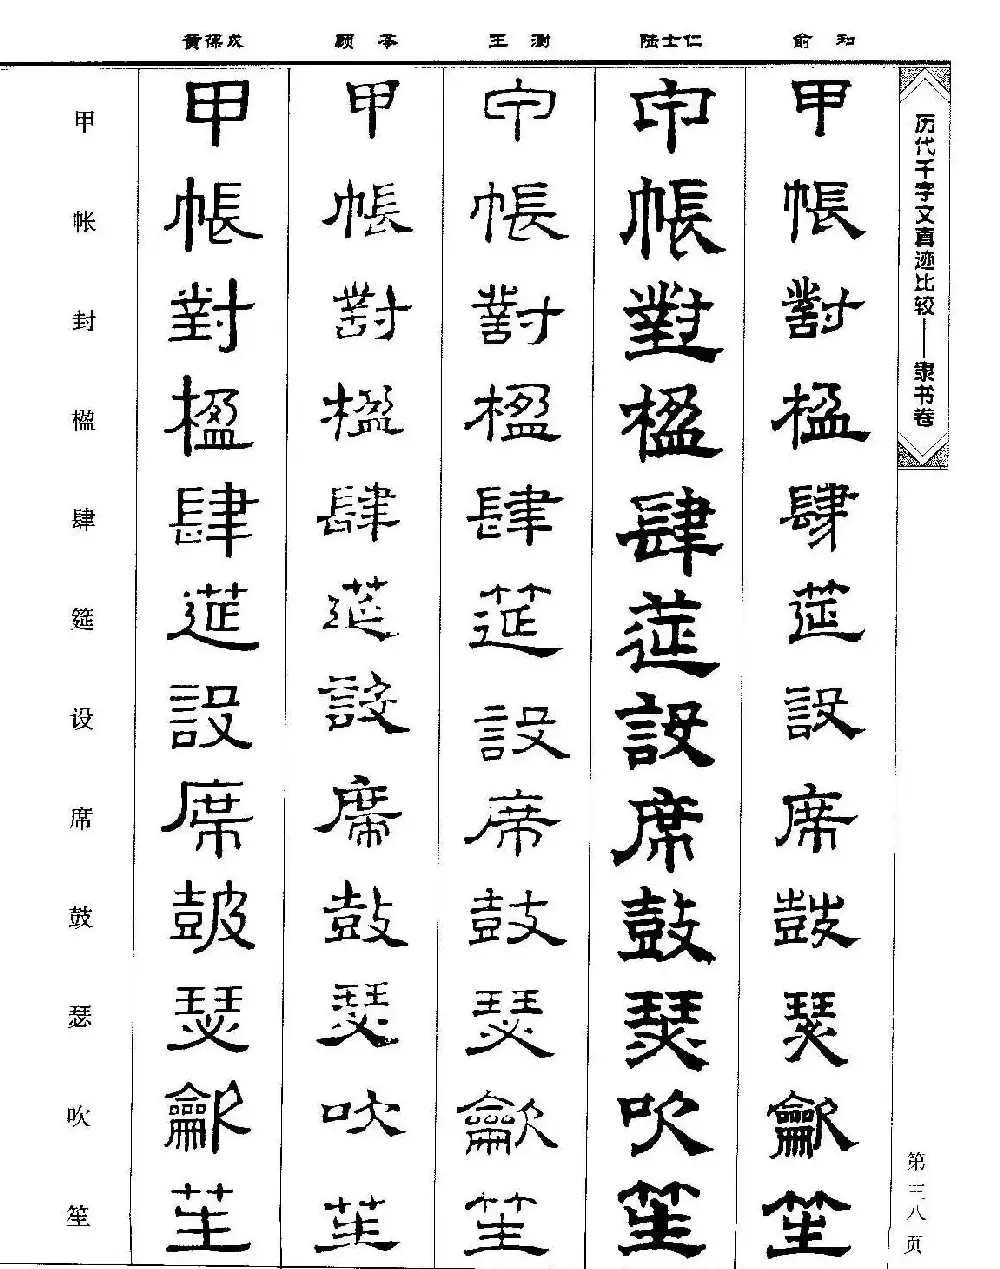 黄葆戉 顾苓 王澍 陆士仁 俞和
历代千字文真迹比较——隶书卷
甲 甲 甲 甲 甲 甲
帐 帳 帳 帳 帳 帳
封 對 對 對 對 對
楹 楹 楹 楹 楹 楹
肆 肆 肆 肆 肆 肆
筵 筵 筵 筵 筵 筵
设 設 設 設 設 設
席 席 席 席 席 席
鼓 皷 鼓 鼓 鼓 鼓
瑟 瑟 瑟 瑟 瑟 瑟
吹 龡 吹 龡 吹 龡
笙 笙 笙 笙 笙 笙
第三八页